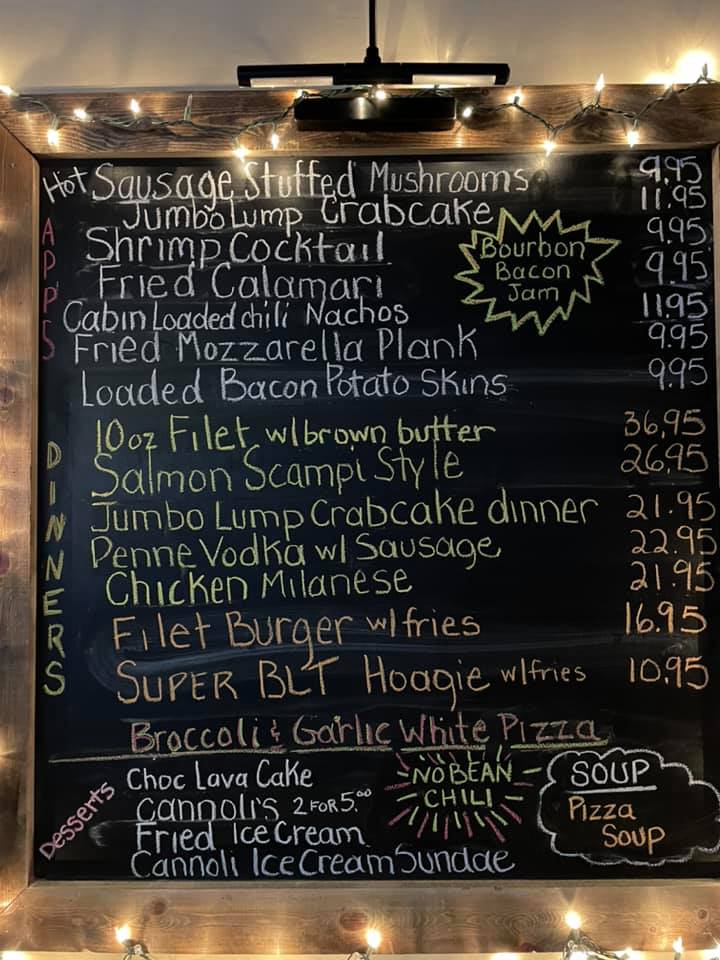 Hot Sausage Stuffed Mushrooms 9.95
Jumbo Lump Crabcake 11.95
APPS
Shrimp Cocktail 9.95
Bourbon
Bacon
Jam
Fried Calamari 9.95
Cabin Loaded chili Nachos 11.95
Fried Mozzarella Plank 9.95
Loaded Bacon Potato Skins 9.95
DINNERS
10oz Filet w/brown butter 36.95
Salmon Scampi Style 26.95
Jumbo Lump Crabcake dinner 21.95
Penne Vodka w/ Sausage 22.95
Chicken Milanese 21.95
Filet Burger w/fries 16.95
SUPER BLT Hoagie w/fries 10.95
Broccoli & Garlic White Pizza
Desserts
Choc Lava Cake
Cannoli's 2 FOR 5.00
Fried Ice Cream
Cannoli Ice Cream Sundae
NO BEAN
CHILI
SOUP
Pizza
Soup